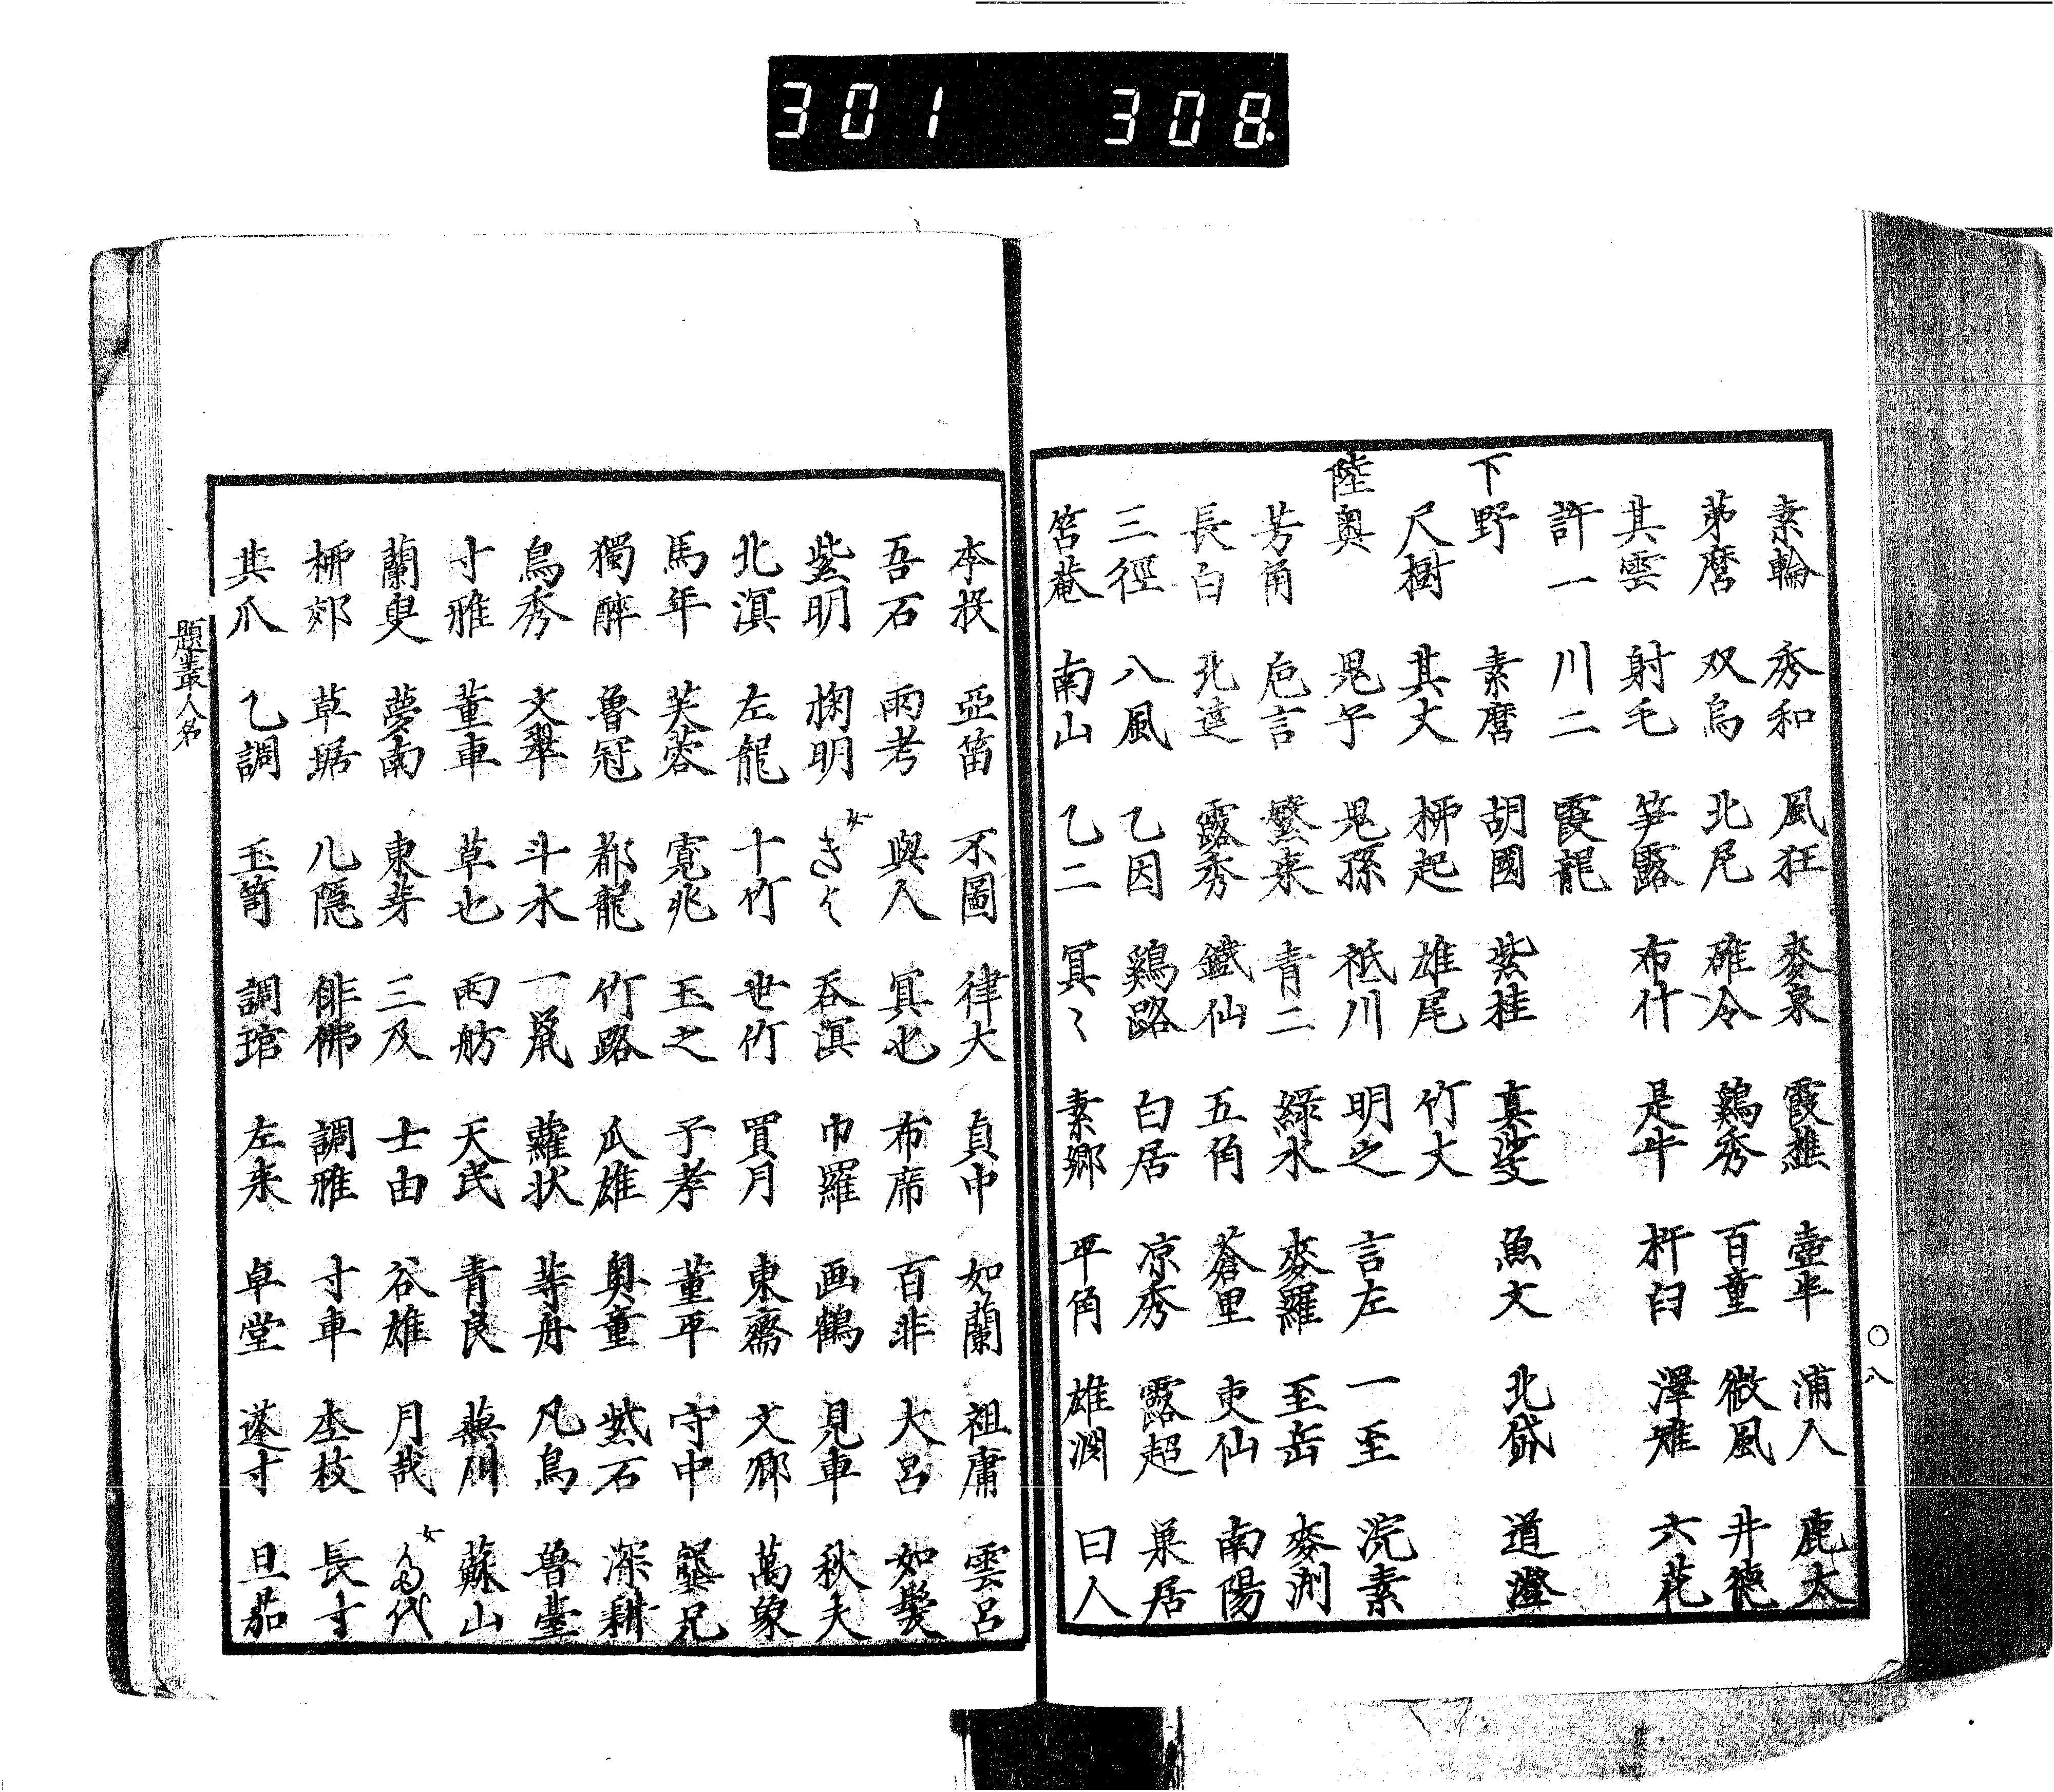 301 308
素輪 秀和 風狂 麥泉 霞樵 壺半 浦人 鹿太
苐麿 双烏 北尼 確冷 鷄秀 百童 微風 井徳
其雲 射毛 笋露 布什 是牛 杵臼 澤雉 六花
許一 川二 霞龍
下野 素麿 胡國 紫桂 真娑 魚文 北岱 道澄
尺樹 其丈 柳起 雄尾 竹丈
陸奥 晁予 晁孫 祗川 明之 言左 一至 浣素
芳角 巵言 繁来 青二 緑水 麥羅 至岳 麥洲
長白 北遠 露秀 鐵仙 五角 蒼里 吏仙 南陽
三徑 八風 乙因 鷄路 白居 凉秀 露超 巣居
筥菴 南山 乙二 冥〻 素郷 平角 雄渕 曰人
〇八
本枝 亞笛 不圖 律大 貞中 如蘭 祖庸 雲呂
吾石 雨考 與人 冥也 布席 百非 大呂 如髪
紫明 掬明 女きく 呑溟 巾羅 画鶴 見車 秋夫
北溟 左龍 十竹 世竹 買月 東齋 文郷 萬象
馬年 芙蓉 寛兆 玉之 子孝 董平 守中 壑兄
獨醉 魯冠 都龍 竹路 瓜雄 奥童 㷔石 深耕
鳥秀 文翠 斗水 一鼠 蘿状 等舟 凡鳥 魯臺
寸雅 董車 草也 雨舫 天民 青良 蕪川 蘇山
蘭叟 夢南 東芽 三及 士由 谷雄 月哉 女多代
柳郊 草琚 几隠 俳佛 調雅 寸車 杢枝 長寸
其爪 乙調 玉笥 調琯 左来 卓堂 蓬寸 旦茄
題叢人名